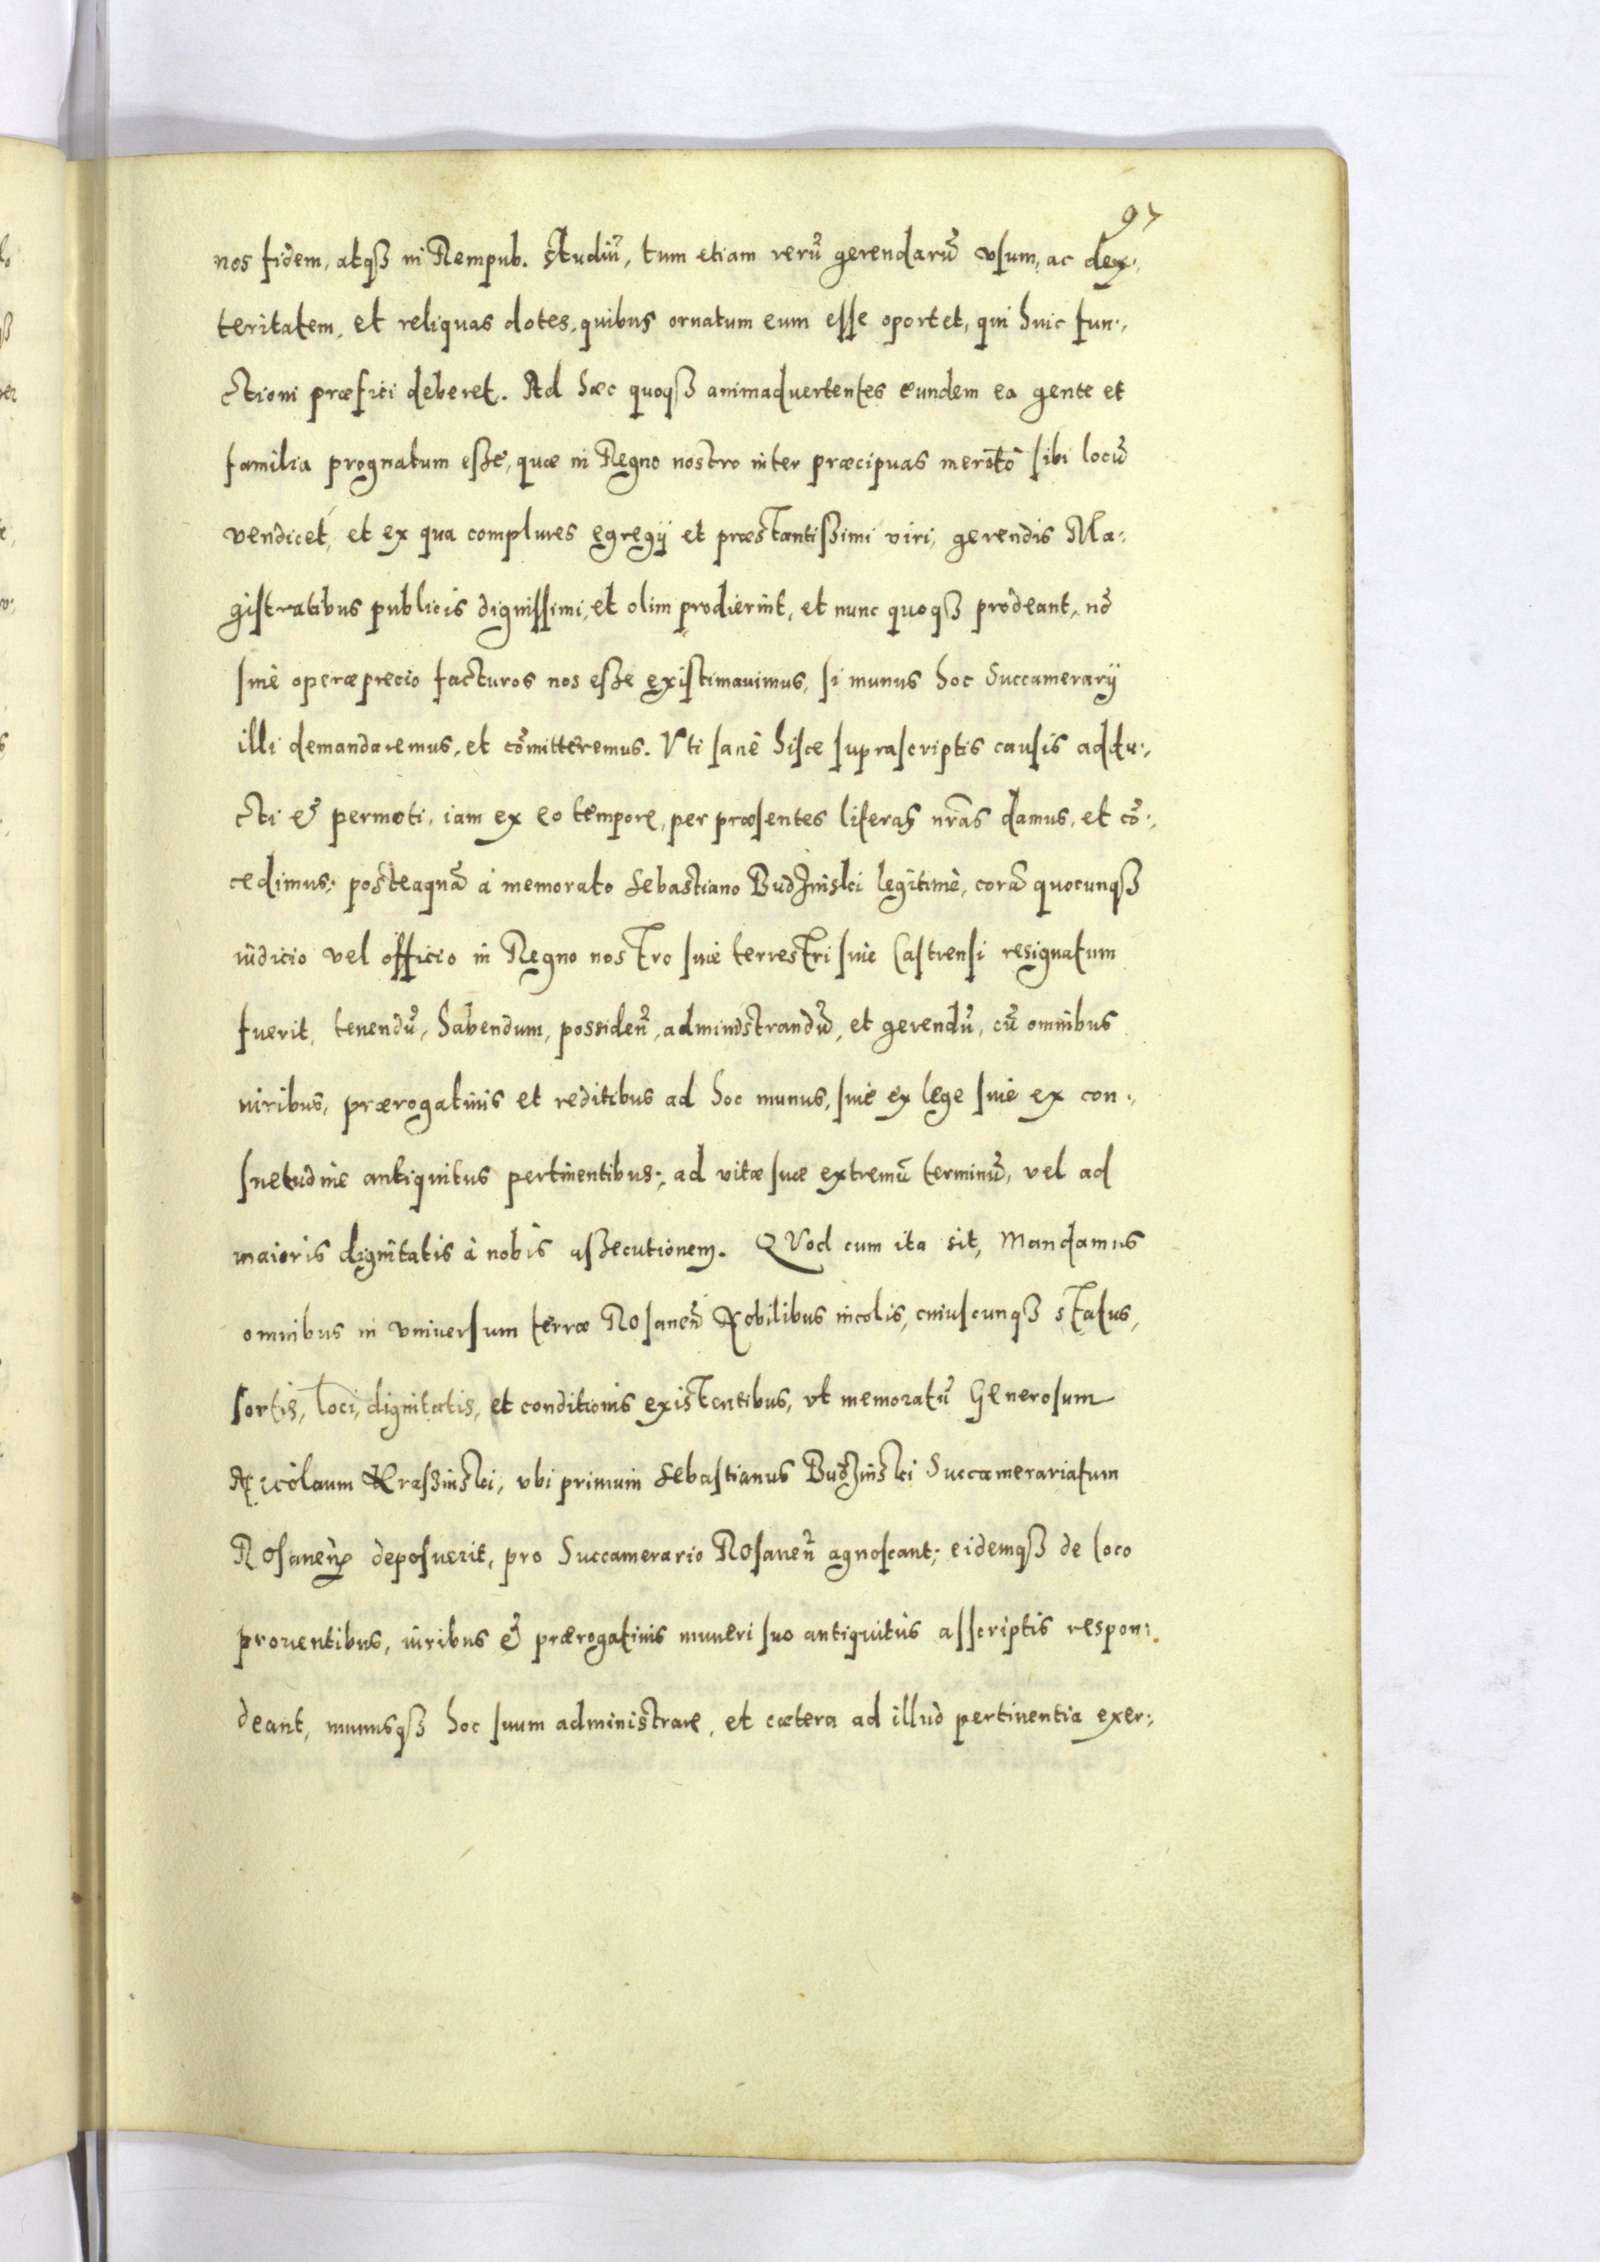 97
nos fidem, atqꝫ in Rempub. studiũ, tum etiam rerũ gerendarũ vsum, ac dex:,
teritatem, et reliquas dotes, quibus ornatum eum esse oportet, qui huic fun:,
ctioni præfici deberet. Ad hæc quoqꝫ animaduertentes eundem ea gente et
familia prognatum esse, quæ in Regno nostro inter præcipuas meritò sibi locũ
vendicet, et ex qua complures egregij et præstantißimi viri, gerendis Ma:
gistratibus publicis dignissimi, et olim prodierint, et nunc quoqꝫ prodeant, nõ
sine operæprecio facturos nos esse existimauimus, si munus hoc Succamerarij
illi demandaremus, et cõmitteremus. Vti sanè hisce suprascriptis causis addu:,
cti & permoti, iam ex eo tempore, per præsentes literas nr̃as damus, et cõ:,
cedimus: posteaquã à memorato Sebastiano Budzinski legitimè, corã quocunqꝫ
iudicio vel officio in Regno nostro siue terrestri siue Castrensi resignatum
fuerit, tenendũ, habendum, possideñ, administrandũ, et gerendũ, cũ omnibus
iuribus, prærogatiuis et reditibus ad hoc munus, siue ex lege siue ex con:,
suetudine antiquitus pertinentibus:, ad vitæ suæ extremũ terminũ, vel ad
maioris dignitatis à nobis assecutionem. QVod cum ita sit, Mandamus
omnibus in vniuersum terræ Rosaneñ Nobilibus incolis, cuiuscunqꝫ status,
sortis, loci, dignitatis, et conditionis existentibus, vt memoratũ Generosum
Nicolaum Krasinski, vbi primum Sebastianus Budzinski Succamerariatum
Rosaneñ deposuerit, pro Succamerario Rosaneñ agnoscant; eidemqꝫ de loco
prouentibus, iuribus & prærogatiuis muneri suo antiquitùs asscriptis respon:
deant, munusqꝫ hoc suum administrare, et cætera ad illud pertinentia exer:,